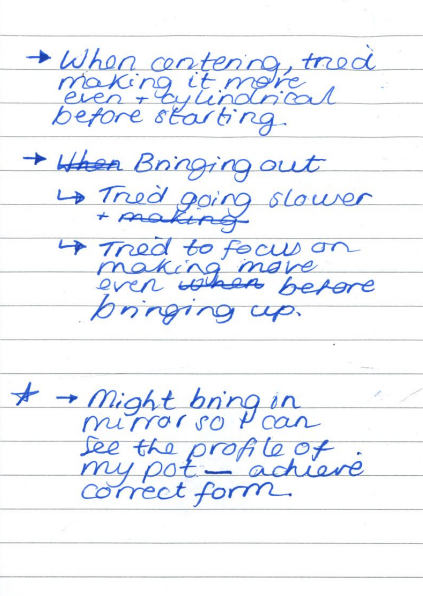 → When centering, tried
making it more
even + cylindrical
before starting.
→ When Bringing out
↳ Tried going slower
+ making
↳ Tried to focus on
making more
even when before
bringing up.
☆ → Might bring in
mirror so I can
see the profile of
my pot — achieve
correct form.